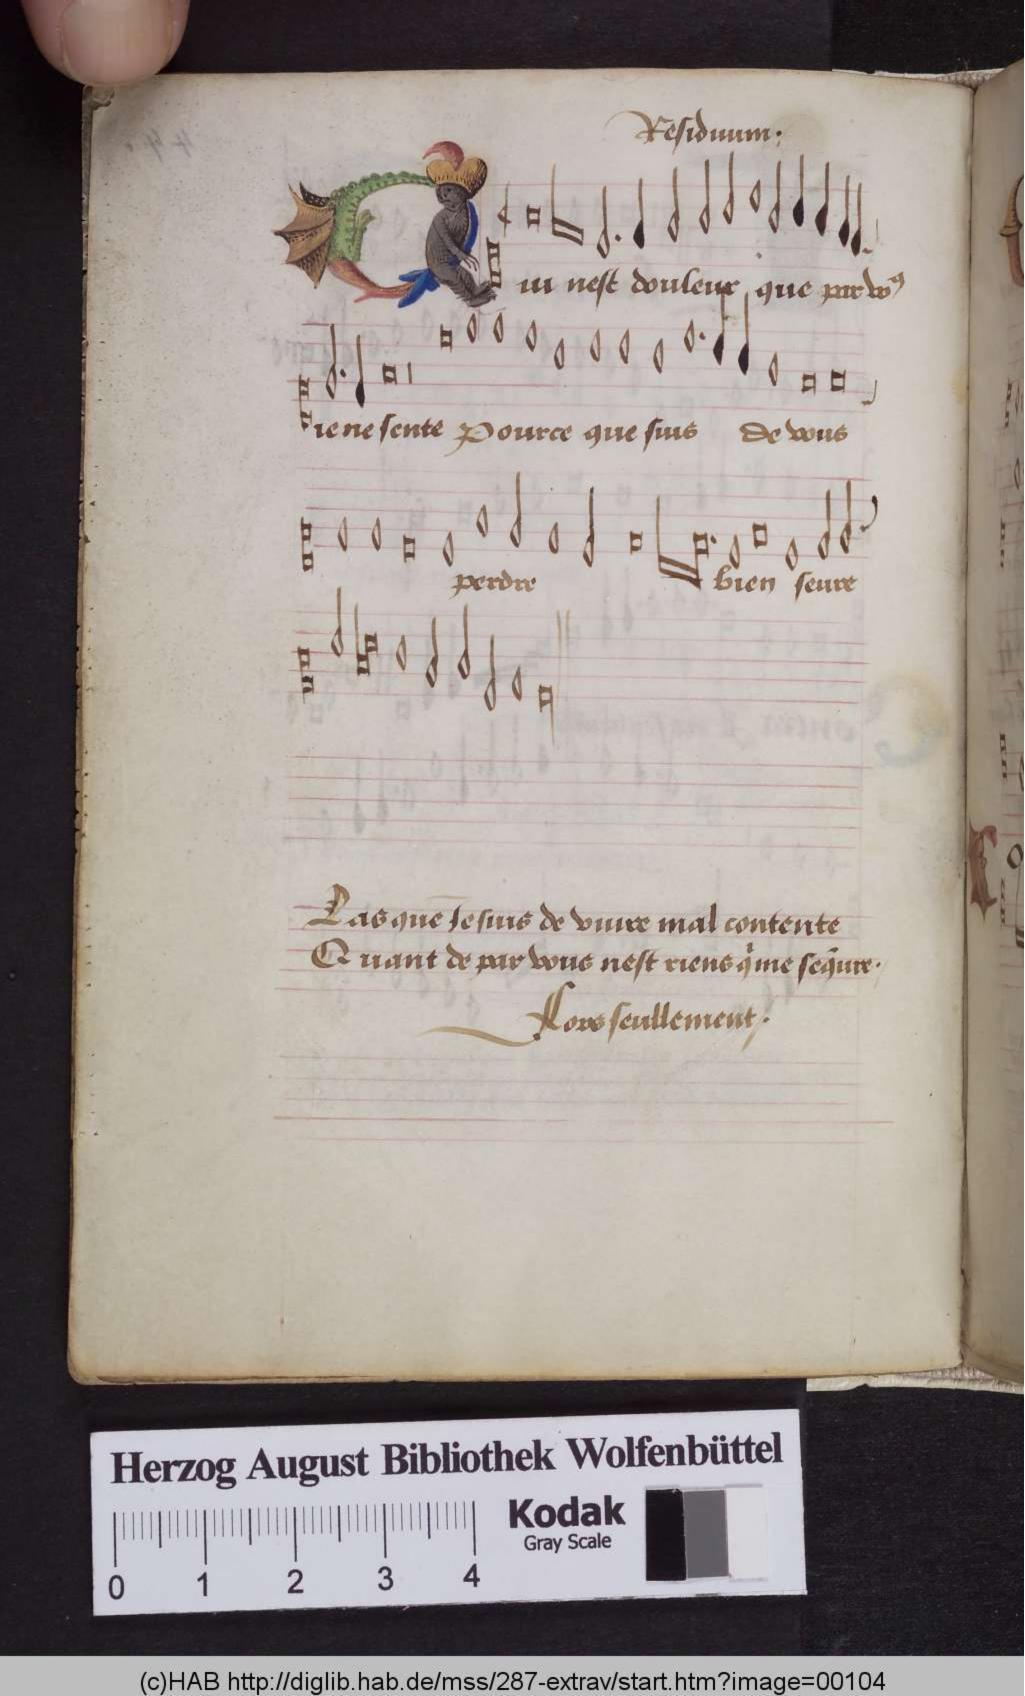 Residuum.
Qui nest douleur que par voꝰ
ie ne sente Pource que suis de vous
perdre bien seure
Las que Je suis de viure mal contente
Quant de par vous nest riens q̃ me seq̃ure.
Lors seullement.
Herzog August Bibliothek Wolfenbüttel
Kodak
Gray Scale
0 1 2 3 4
(c)HAB http://diglib.hab.de/mss/287-extrav/start.htm?image=00104